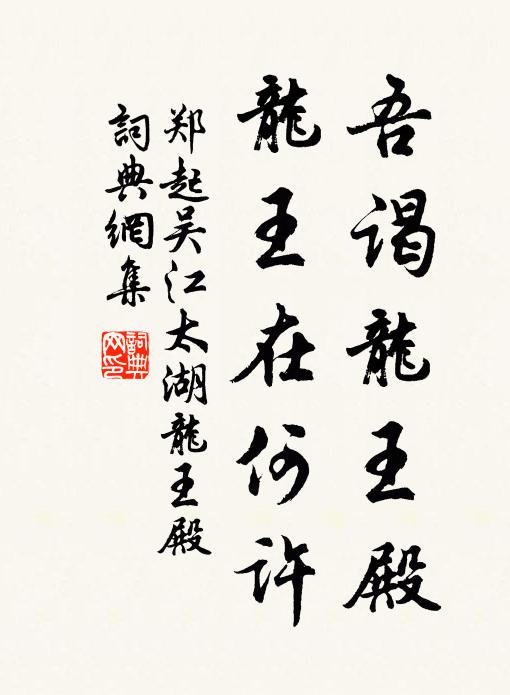 吾谒龍王殿
龍王在何许
郑起吴江太湖龍王殿
詞典網集
詞典網印